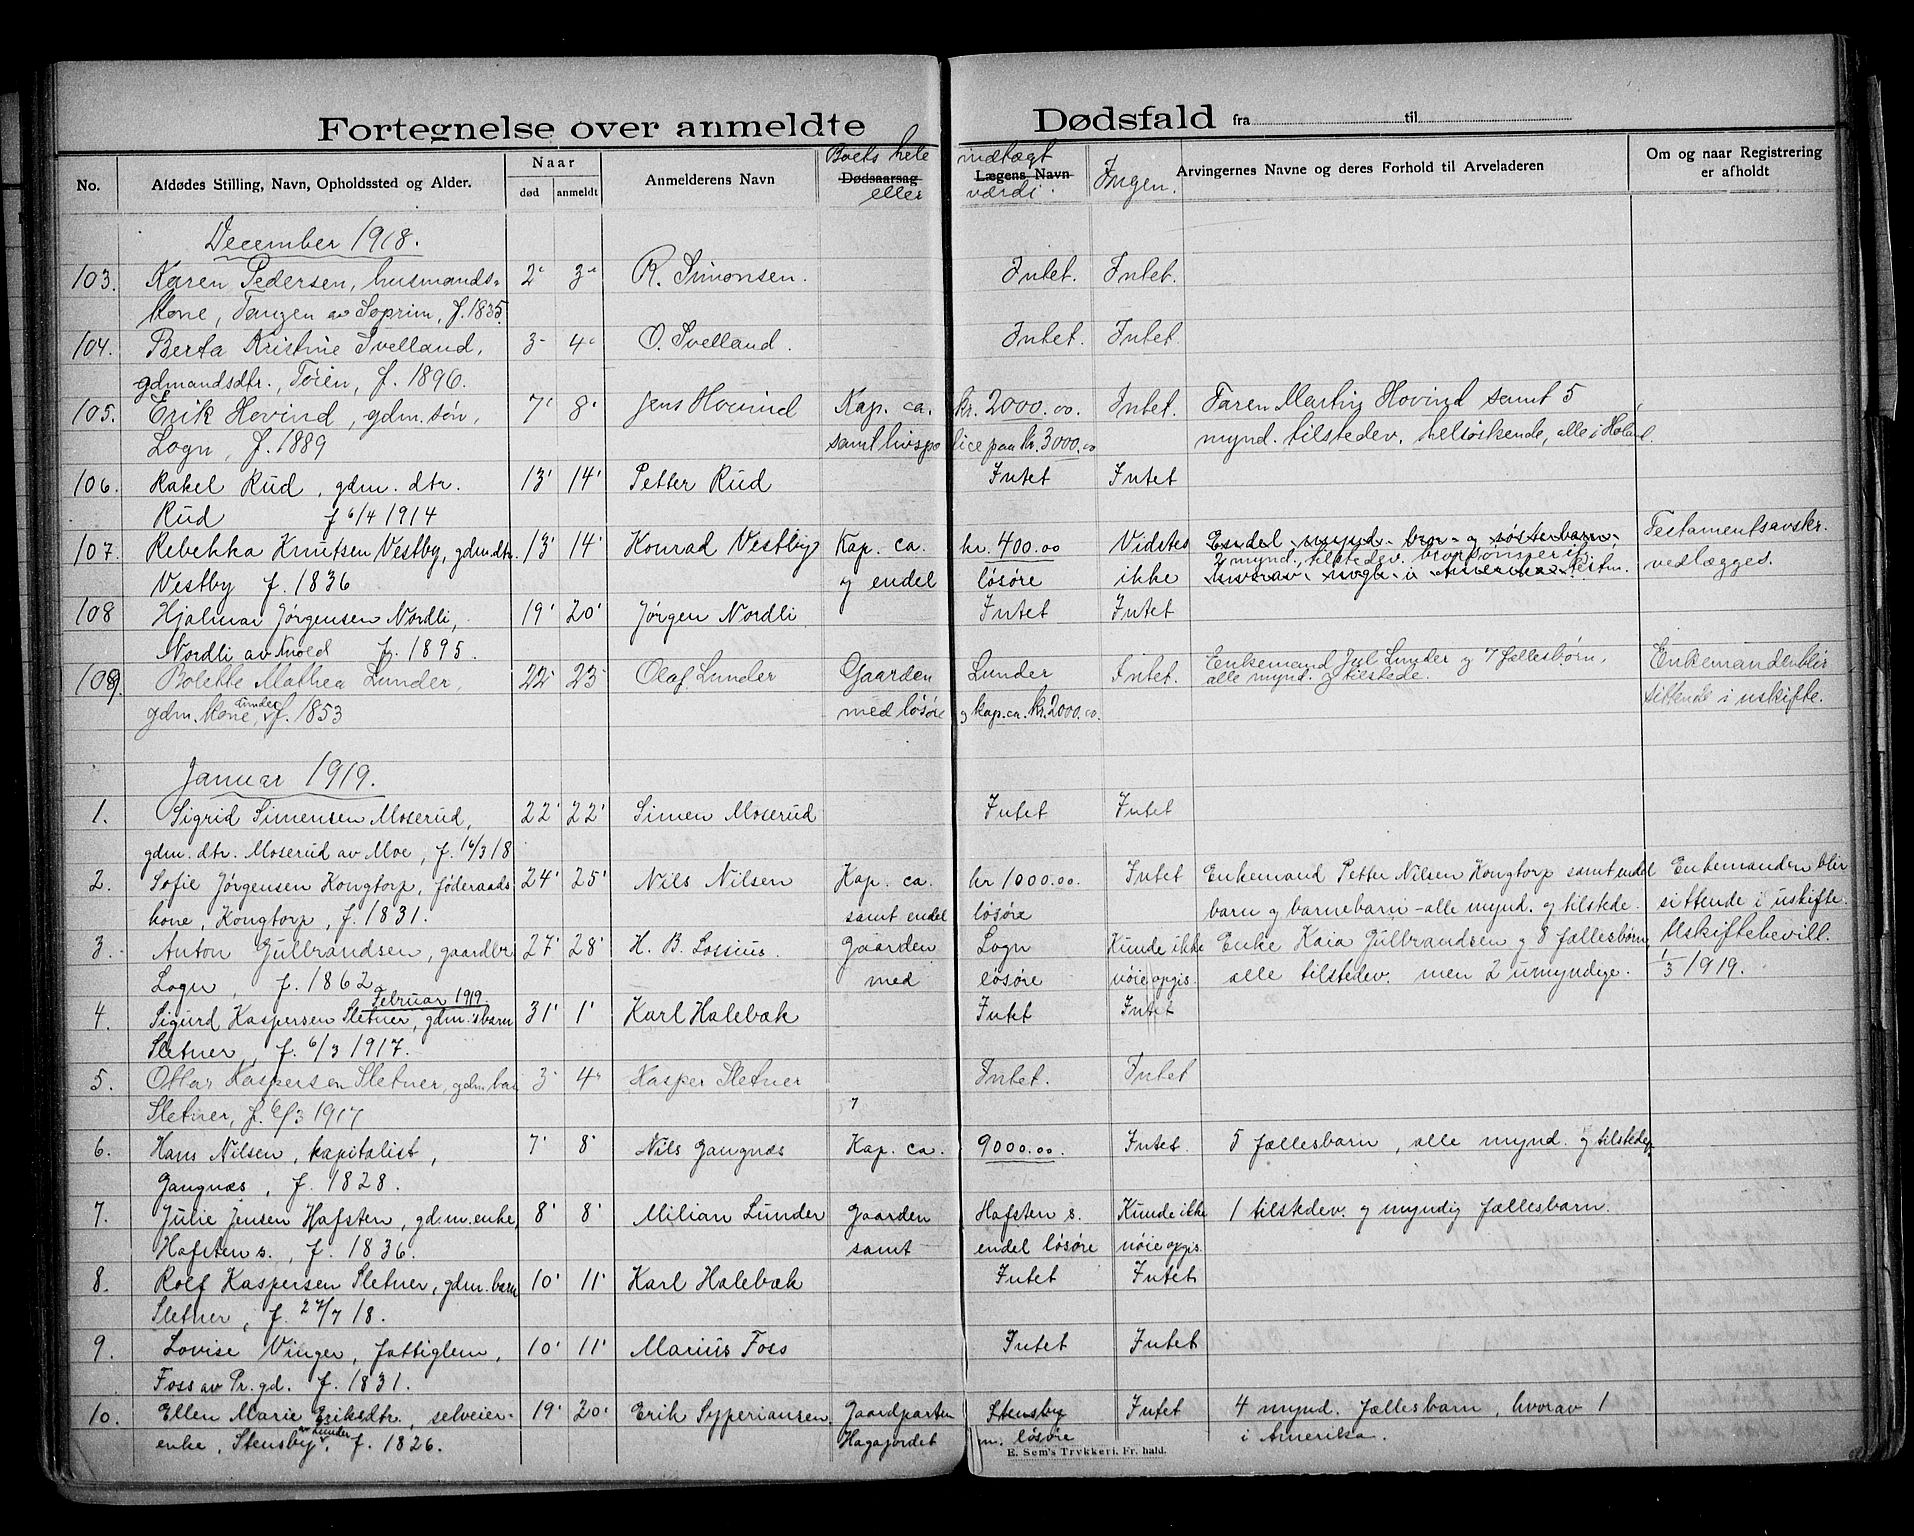 Fortegnelse over anmeldte Dødsfald fra til
No. Afdødes Stilling, Navn, Opholdssted og Alder. Naar død anmeldt Anmelderens Navn Boets hele Dødsaarsag eller indtægt Lægens Navn værdi. Ingen. Arvingernes Navne og deres Forhold til Arveladeren Om og naar Registrering er afholdt
December 1918.
103. Karen Pedersen, husmands- 2' 3' R. Simonsen. Intet. Intet.
kone, Tangen av Soprim, f. 1835.
104. Berta Kristine Svelland, 3' 4' O. Svelland. Intet. Intet.
gdmandsdtr., Toien, f. 1896.
105. Erik Hovind, gdm. søn, 7' 8' Jens Hovind Kap. ca. kr. 2000.00 Intet. Faren Martin Hovind samt 5
Logn, f. 1889 samt livspolice paa kr. 3000.00 mynd. tilstedev. helsøskende, alle i Høland.
106. Rakel Rud, gdm. dtr. 13' 14' Petter Rud Intet Intet
Rud f 6/4 1914
107. Rebekka Knutsen Vestby, gdm. dtr. 13' 14' Konrad Vestby Kap. ca. kr. 400.00 Vidstes Endel mynd. bror- og søsterbarn Testamentsavskr.
2 mynd. tilstedev. brorsønner if.
Vestby f. 1836 og endel løsøre ikke hvorav nogle i Amerika. testm. vedlægges.
108 Hjalmar Jørgensen Nordli, 19' 20' Jørgen Nordli Intet Intet
Nordli av f. 1895.
109. Bolette Mathea Lunder, 22' 23' Olaf Lunder Gaarden Lunder Intet. Enkemand Jul Lunder og 7 fællesbørn, Enkemanden blir
alle mynd. og tilstede.
gdm. kone, Lunder f. 1853 med løsøre og kap. ca. kr. 2000.00. sittende i uskifte.
Januar 1919.
1. Sigrid Simensen Moserud, 22' 22' Simen Moserud Intet Intet
gdm. dtr. Moserud av Moe, f. 16/3 18
2. Sofie Jørgensen Kongtorp, føderaads 24' 25' Nils Nilsen Kap. ca. kr 1000.00. Intet Enkemand Petter Nilsen Kongtorp samt endel Enkemanden blir
kone, Kongtorp, f. 1831. samt endel løsøre barn og barnebarn - alle mynd. og tilstede. sittende i uskifte.
3. Anton Gulbrandsen, gaardbr 27' 28' H. B. Lossius. Gaarden Logn Kunde ikke Enke Kaia Gulbrandsen og 8 fællesbørn, Uskiftebevill.
Logn, f. 1862. med løsøre nøie opgis. alle tilstedev. men 2 umyndige. 1/3 1919.
Februar 1919.
4. Sigurd Kaspersen Sletner, gdm.'sbarn 31' 1' Karl Halebæk Intet Intet
Sletner, f. 6/3 1917.
5. Ottar Kaspersen Sletner, gdm. 3' 4' Kasper Sletner Intet. Intet
Sletner, f. 6/3 1917
6. Hans Nilsen, kapitalist, 7' 8' Nils Gangnæs Kap. ca. 9000.00. Intet. 5 fællesbarn, alle mynd. og tilstedev.
Gangnæs, f. 1828.
7. Julie Jensen Hafsten, gdm. enke, 8' 8' Milian Lunder Gaarden Hafsten s. Kunde ikke 1 tilstedev. og myndig fællesbarn.
Hafsten s., f. 1836. samt endel løsøre nøie opgis.
8. Rolf Kaspersen Sletner, gdm. barn 10' 11' Karl Halebæk Intet Intet
Sletner, f. 27/7 18.
9. Lovise Vinger, fattiglem, 10' 11' Marius Foss Intet Intet
Foss av Pr. gd. f. 1831.
10. Ellen Marie Eriksdtr, selveier- 19' 20' Erik Syperiansen Gaardparten Stensby Intet 4 mynd. fællesbarn, hvorav 1
enke, Stensby av Lunder, f. 1826. Hagajordet m. løsøre i Amerika.
E. Sem's Trykkeri, Fr. hald.